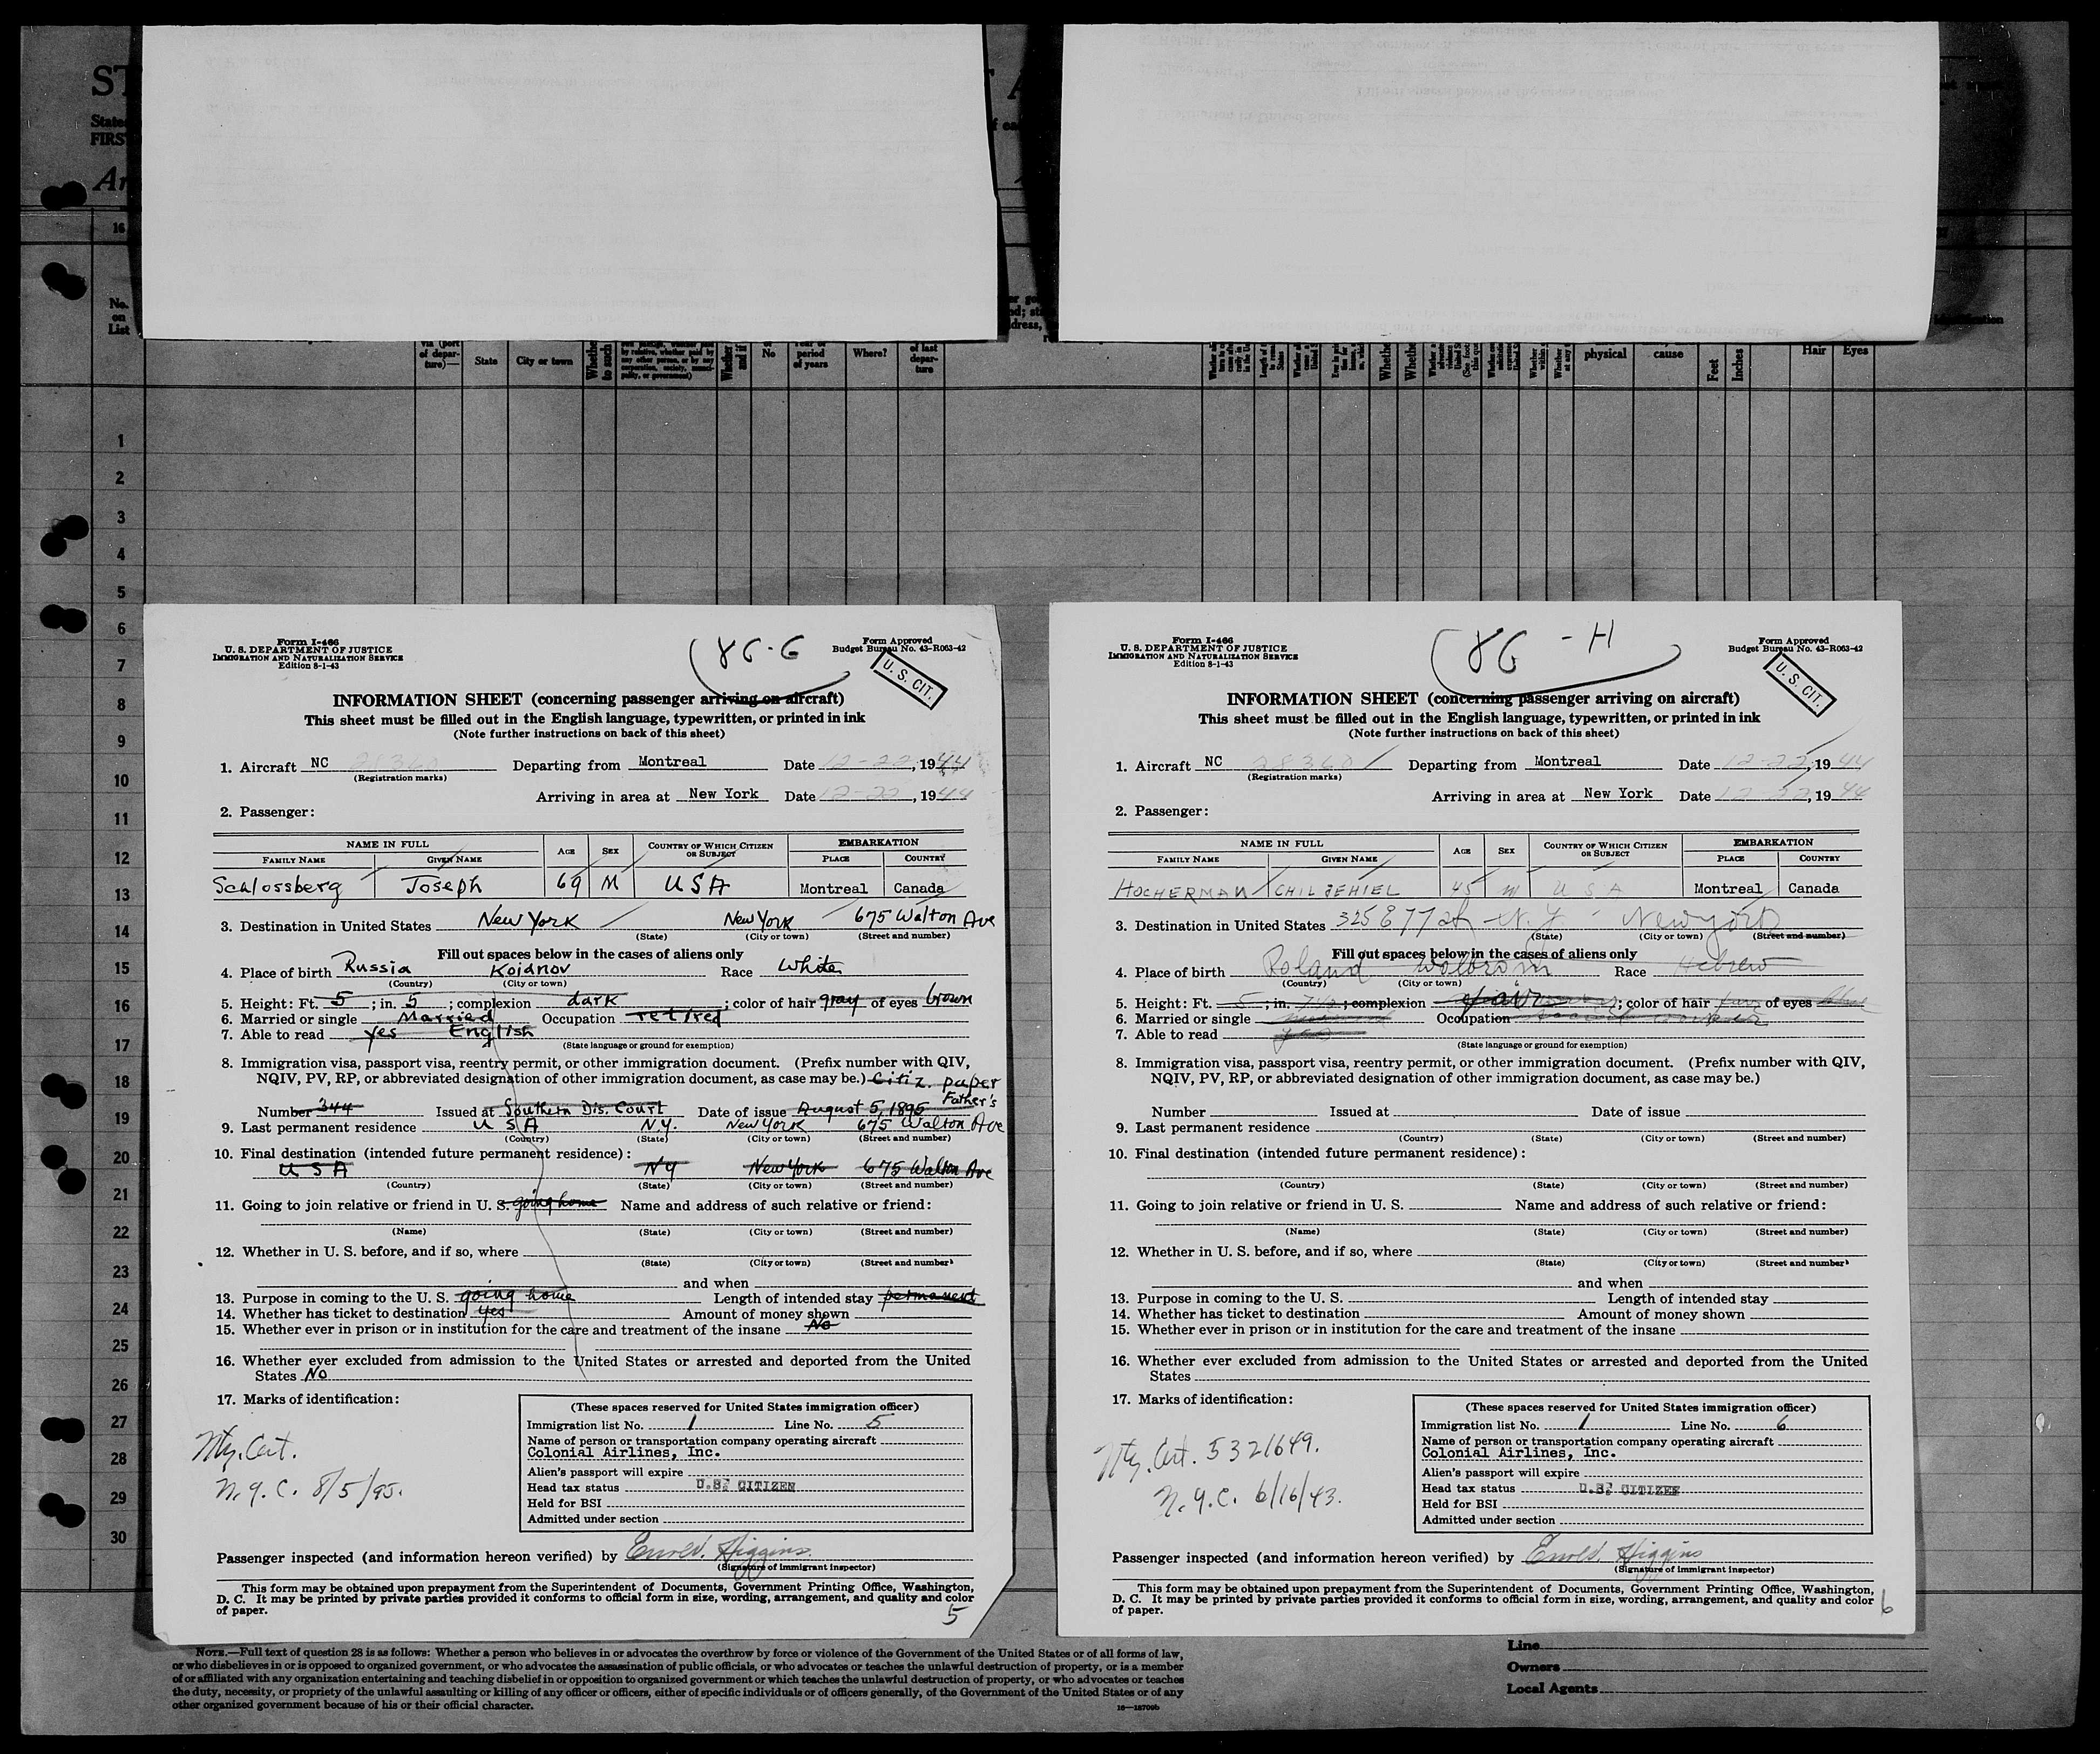 16
No.
on
List
via (port
of depar-
ture)—
State
City or town
No
period
of years
Where?
of last
depar-
ture
physical
cause
Feet
Inches
Hair
Eyes
1
2
3
4
5
6
7
8
9
10
11
12
13
14
15
16
17
18
19
20
21
22
23
24
25
26
27
28
29
30
Form I-466
U. S. DEPARTMENT OF JUSTICE
IMMIGRATION AND NATURALIZATION SERVICE
Edition 8-1-43
86-G
Form Approved
Budget Bureau No. 43-R063-42
U. S. CIT.
INFORMATION SHEET (concerning passenger arriving on aircraft)
This sheet must be filled out in the English language, typewritten, or printed in ink
(Note further instructions on back of this sheet)
1. Aircraft NC 28360 Departing from Montreal Date 12-22, 1944
(Registration marks)
Arriving in area at New York Date 12-22, 1944
2. Passenger:
NAME IN FULL AGE SEX COUNTRY OF WHICH CITIZEN OR SUBJECT EMBARKATION
FAMILY NAME GIVEN NAME PLACE COUNTRY
Schlossberg Joseph 69 M USA Montreal Canada
3. Destination in United States New York New York 675 Walton Ave
(State) (City or town) (Street and number)
Fill out spaces below in the cases of aliens only
4. Place of birth Russia Koidnov Race White
(Country) (City or town)
5. Height: Ft. 5; in. 5; complexion dark; color of hair gray of eyes brown
6. Married or single Married Occupation retired
7. Able to read yes English
(State language or ground for exemption)
8. Immigration visa, passport visa, reentry permit, or other immigration document. (Prefix number with QIV,
NQIV, PV, RP, or abbreviated designation of other immigration document, as case may be.) Citiz. paper
Father's
Number 344 Issued at Southern Dis. Court Date of issue August 5, 1895
9. Last permanent residence U S A N.Y. New York 675 Walton Ave
(Country) (State) (City or town) (Street and number)
10. Final destination (intended future permanent residence):
U S A NY New York 675 Walton Ave
(Country) (State) (City or town) (Street and number)
11. Going to join relative or friend in U. S. going home Name and address of such relative or friend:
(Name) (State) (City or town) (Street and number)
12. Whether in U. S. before, and if so, where
(State) (City or town) (Street and number)
and when
13. Purpose in coming to the U. S. going home Length of intended stay permanent
14. Whether has ticket to destination yes Amount of money shown
15. Whether ever in prison or in institution for the care and treatment of the insane No
16. Whether ever excluded from admission to the United States or arrested and deported from the United
States No
17. Marks of identification:
Nty. Cert.
N.Y.C. 8/5/95.
(These spaces reserved for United States immigration officer)
Immigration list No. 1 Line No. 5
Name of person or transportation company operating aircraft
Colonial Airlines, Inc.
Alien's passport will expire
Head tax status U.S. CITIZEN
Held for BSI
Admitted under section
Passenger inspected (and information hereon verified) by Higgins
(Signature of immigrant inspector)
This form may be obtained upon prepayment from the Superintendent of Documents, Government Printing Office, Washington,
D. C. It may be printed by private parties provided it conforms to official form in size, wording, arrangement, and quality and color
of paper.
5
Form I-466
U. S. DEPARTMENT OF JUSTICE
IMMIGRATION AND NATURALIZATION SERVICE
Edition 8-1-43
86 - H
Form Approved
Budget Bureau No. 43-R063-42
U. S. CIT.
INFORMATION SHEET (concerning passenger arriving on aircraft)
This sheet must be filled out in the English language, typewritten, or printed in ink
(Note further instructions on back of this sheet)
1. Aircraft NC 28360 Departing from Montreal Date 12-22, 1944
(Registration marks)
Arriving in area at New York Date 12-22, 1944
2. Passenger:
NAME IN FULL AGE SEX COUNTRY OF WHICH CITIZEN OR SUBJECT EMBARKATION
FAMILY NAME GIVEN NAME PLACE COUNTRY
HOCHERMAN CHIL JEHIEL 45 M U S A Montreal Canada
3. Destination in United States 325 E 77 st N.Y. New York
(State) (City or town) (Street and number)
Fill out spaces below in the cases of aliens only
4. Place of birth Poland Wolbrom Race Hebrew
(Country) (City or town)
5. Height: Ft. 5; in. 7½; complexion fair; color of hair of eyes blue
6. Married or single Occupation social worker
7. Able to read yes
(State language or ground for exemption)
8. Immigration visa, passport visa, reentry permit, or other immigration document. (Prefix number with QIV,
NQIV, PV, RP, or abbreviated designation of other immigration document, as case may be.)
Number Issued at Date of issue
9. Last permanent residence
(Country) (State) (City or town) (Street and number)
10. Final destination (intended future permanent residence):
(Country) (State) (City or town) (Street and number)
11. Going to join relative or friend in U. S. Name and address of such relative or friend:
(Name) (State) (City or town) (Street and number)
12. Whether in U. S. before, and if so, where
(State) (City or town) (Street and number)
and when
13. Purpose in coming to the U. S. Length of intended stay
14. Whether has ticket to destination Amount of money shown
15. Whether ever in prison or in institution for the care and treatment of the insane
16. Whether ever excluded from admission to the United States or arrested and deported from the United
States
17. Marks of identification:
Nty. Cert. 5321649.
N.Y.C. 6/16/43.
(These spaces reserved for United States immigration officer)
Immigration list No. 1 Line No. 6
Name of person or transportation company operating aircraft
Colonial Airlines, Inc.
Alien's passport will expire
Head tax status U.S. CITIZEN
Held for BSI
Admitted under section
Passenger inspected (and information hereon verified) by Higgins
(Signature of immigrant inspector)
This form may be obtained upon prepayment from the Superintendent of Documents, Government Printing Office, Washington,
D. C. It may be printed by private parties provided it conforms to official form in size, wording, arrangement, and quality and color
of paper.
6
NOTE.—Full text of question 28 is as follows: Whether a person who believes in or advocates the overthrow by force or violence of the Government of the United States or of all forms of law,
or who disbelieves in or is opposed to organized government, or who advocates the assassination of public officials, or who advocates or teaches the unlawful destruction of property, or is a member
of or affiliated with any organization entertaining and teaching disbelief in or opposition to organized government or which teaches the unlawful destruction of property, or who advocates or teaches
the duty, necessity, or propriety of the unlawful assaulting or killing of any officer or officers, either of specific individuals or of officers generally, of the Government of the United States or of any
other organized government because of his or their official character.
Line
Owners
Local Agents